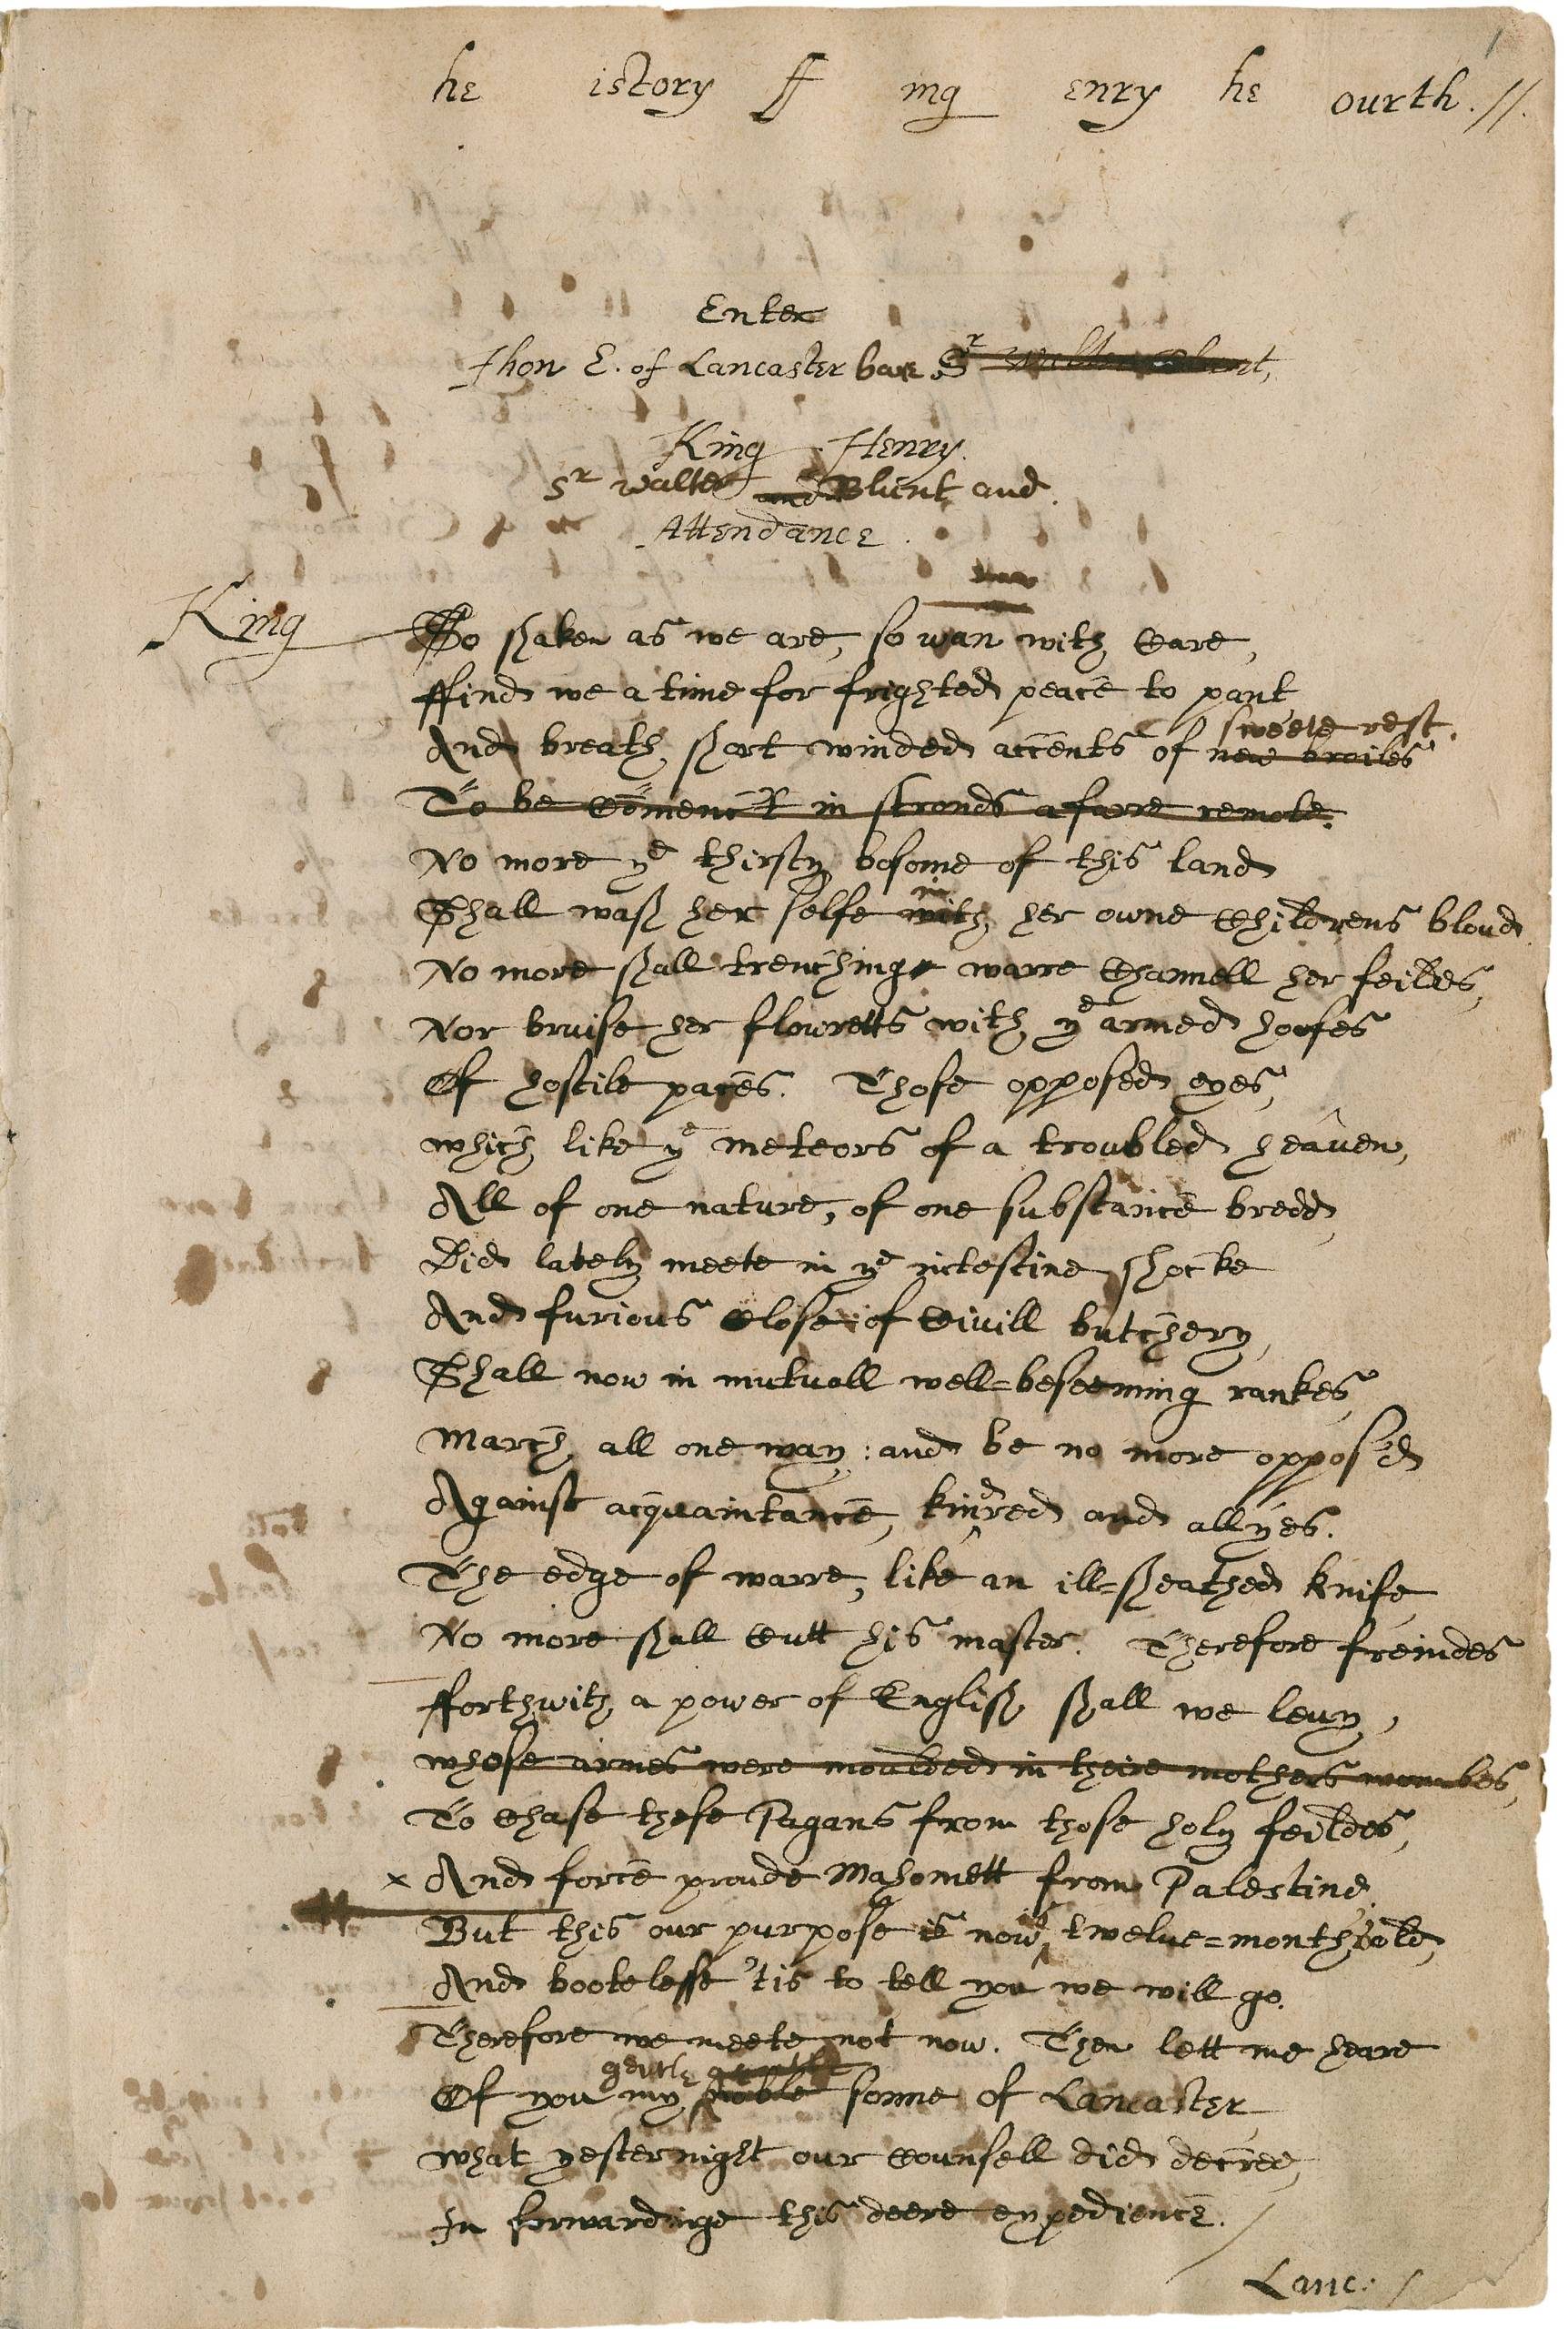 he istory ff ing enry he ourth. //.
Enter
Jhon E. of Lancaster bare Sr Walter Blunt,
King Henry.
Sr walter and Blunt, and
Attendance.
King So shaken as we are, so wan with Care,
ffind we a time for frighted peace to pant
sweete rest.
And breath short winded accents of new broiles
To be Com̄enc't in stronds a farre remote.
No more ye thirsty bosome of this land
in
Shall wash her selfe with her owne Childrens bloud
No more shall trenching warre Channell her feildes,
Nor bruise her flouretts with ye armed hoofes
Of hostile paces. Those opposed eyes,
which like ye meteors of a troubled heauen,
All of one nature, of one substance bredd,
Did lately meete in ye intestine shocke
And furious Close of Ciuill butchery,
Shall now in mutuall well=beseeming rankes,
March all one way: and be no more oppos'd
Against acquaintance, kindred and allyes.
The edge of warre, like an ill=sheathed knife
No more shall Cutt his master. Therefore freindes
fforthwith a power of English shall we leuy,
whose armes were moulded in theire mothers wombes,
To Chase these Pagans from those holy feildes,
x And force proude Mahomett from Palestine.
is
But this our purpose is now twelue=month old,
And bootelesse 'tis to tell you we will go.
Therefore we meete not now. Then lett me heare
gentle gentle
Of you my noble sonne of Lancaster
what yesternight our Counsell did decree,
In forwardinge this deere expedience.
Lanc: /